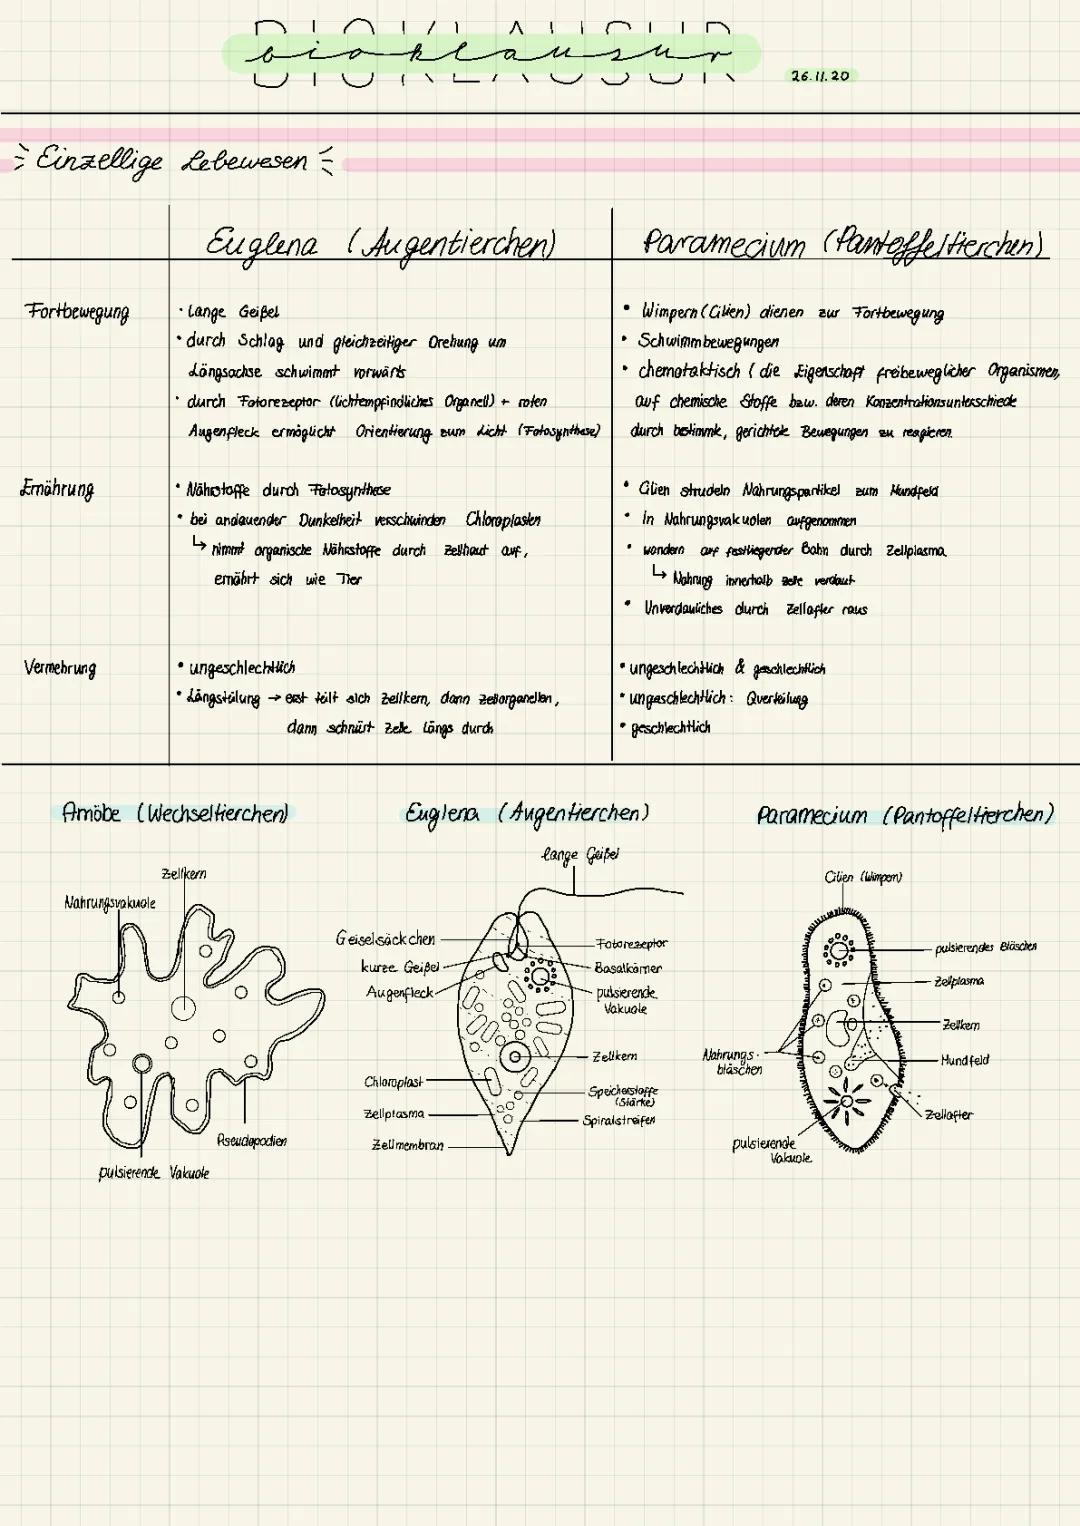 BIOKLAUSUR
bioklausur
26.11.20
Einzellige Lebewesen
Euglena (Augentierchen)
Paramecium (Pantoffeltierchen)
Fortbewegung
· Lange Geißel
• durch Schlag und gleichzeitiger Drehung um
Längsachse schwimmt vorwärts
• durch Fotorezeptor (lichtempfindliches Organell) + roten
Augenfleck ermöglicht Orientierung zum Licht (Fotosynthese)
• Wimpern (Cilien) dienen zur Fortbewegung
• Schwimmbewegungen
• chemotaktisch (die Eigenschaft freibeweglicher Organismen,
auf chemische Stoffe bzw. deren Konzentrationsunterschiede
durch bestimmte, gerichtete Bewegungen zu reagieren.
Ernährung
• Nährstoffe durch Fotosynthese
• bei andauernder Dunkelheit verschwinden Chloroplasten
↳ nimmt organische Nährstoffe durch Zellhaut auf,
ernährt sich wie Tier
• Cilien strudeln Nahrungspartikel zum Mundfeld
• In Nahrungsvakuolen aufgenommen
• wandern auf festliegender Bahn durch Zellplasma
↳ Nahrung innerhalb Zelle verdaut
• Unverdauliches durch Zellafter raus
Vermehrung
• ungeschlechtlich
• Längsteilung → erst teilt sich Zellkern, dann Zellorganellen,
dann schnürt Zelle längs durch
• ungeschlechtlich & geschlechtlich
• ungeschlechtlich: Querteilung
• geschlechtlich
Amöbe (Wechseltierchen)
Zellkern
Nahrungsvakuole
Pseudopodien
pulsierende Vakuole
Euglena (Augentierchen)
lange Geißel
Geiselsäckchen
kurze Geißel
Augenfleck
Chloroplast
Zellplasma
Zellmembran
Fotorezeptor
Basalkörner
pulsierende
Vakuole
Zellkern
Speicherstoffe
(Stärke)
Spiralstreifen
Paramecium (Pantoffeltierchen)
Cilien (Wimpern)
pulsierendes Bläschen
Zellplasma
Zellkern
Mundfeld
Zellafter
Nahrungs-
bläschen
pulsierende
Vakuole